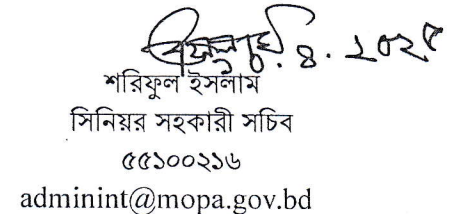 ১০.৪.২০২৫
শরিফুল ইসলাম
সিনিয়র সহকারী সচিব
৫৫১০০২১৬
adminint@mopa.gov.bd